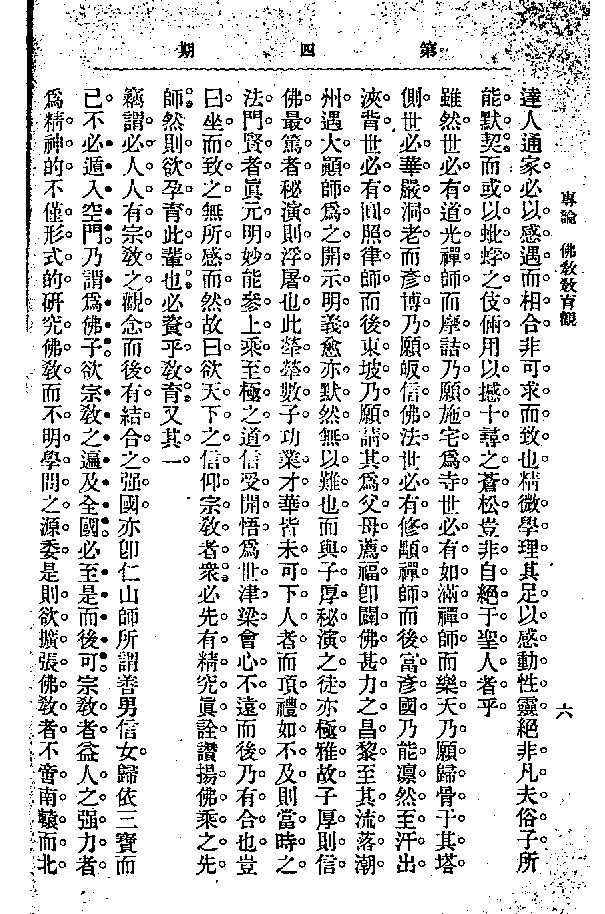 第四期
專論 佛教教育觀
六
達人通家必以感遇而相合非可求而致也精微學理其足以感動性靈絕非凡夫俗子所
能默契而或以蚍蜉之伎倆用以撼十尋之蒼松豈非自絕于聖人者乎
雖然世必有道光禪師而摩詰乃願施宅爲寺世必有如滿禪師而樂天乃願歸骨于其塔
側世必華嚴洞老而彥博乃願皈信佛法世必有修顒禪師而後富彥國乃能凛然至汗出
浹背世必有圓照律師而後東坡乃願請其爲父母薦福卽闢佛甚力之昌黎至其流落潮
州遇大顚師爲之開示明義愈亦默然無以難也而與子厚秘演之徒亦極雅故子厚則信
佛最篤者秘演則浮屠也此犖犖數子功業才華皆未可下人者而頂禮如不及則當時之
法門賢者眞元明妙能參上乘至極之道信受開悟爲世津梁會心不遠而後乃有合也豈
曰坐而致之無所感而然故曰欲天下之信仰宗教者衆必先有精究眞詮讚揚佛乘之先
師然則欲孕育此輩也必資乎教育又其一
竊謂必人人有宗敎之觀念而後有結合之强國亦卽仁山師所謂善男信女歸依三寶而
已不必遁入空門乃謂爲佛子欲宗敎之遍及全國必至是而後可宗敎者益人之强力者
爲精神的不僅形式的研究佛敎而不明學問之源委是則欲擴張佛敎者不啻南轅而北